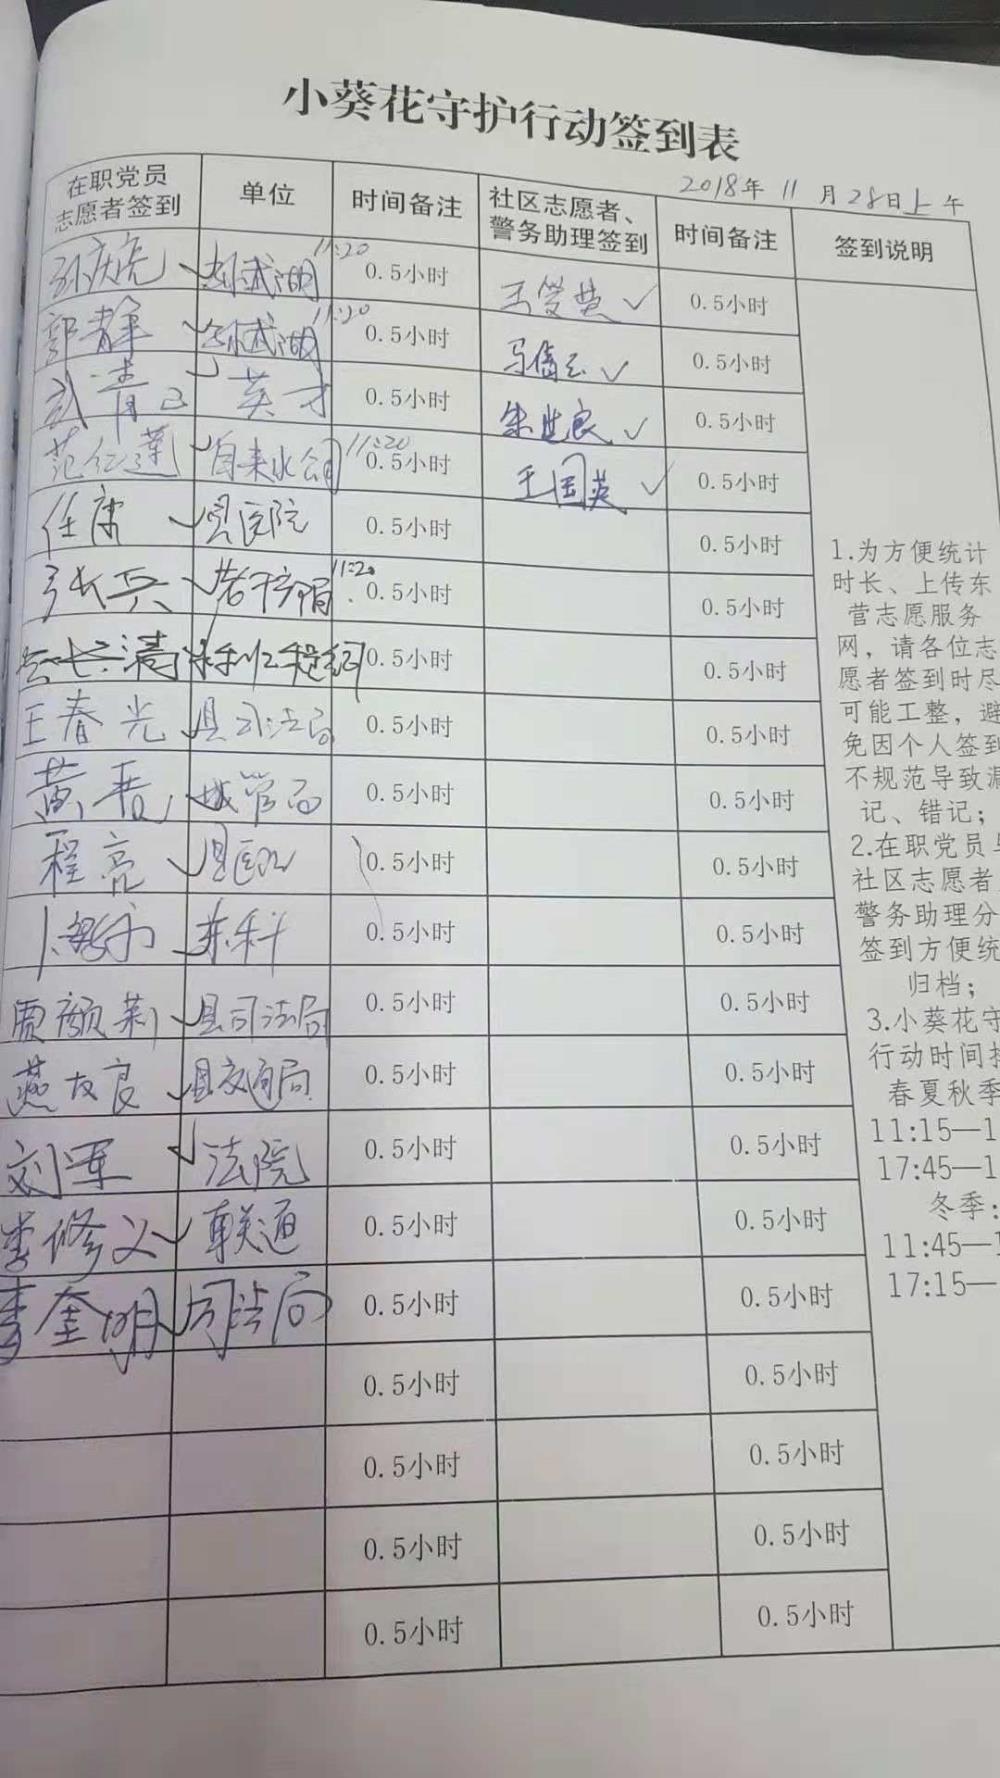 小葵花守护行动签到表
2018年 11 月 28日上午
在职党员
志愿者签到
单位
时间备注
社区志愿者、
警务助理签到
时间备注
签到说明
孙武湖 11:20 0.5小时 0.5小时
郭静 孙武湖 11:20 0.5小时 0.5小时
英才 0.5小时 朱世良 0.5小时
范仁莲 自来水公司 11:20 0.5小时 王国英 0.5小时
任康 县医院 0.5小时 0.5小时
张兵 11:20 0.5小时 0.5小时
0.5小时 0.5小时
王春光 县司法局 0.5小时 0.5小时
城管局 0.5小时 0.5小时
程亮 县医院 0.5小时 0.5小时
0.5小时 0.5小时
贾颜莉 县司法局 0.5小时 0.5小时
燕友良 县交通局 0.5小时 0.5小时
刘军 法院 0.5小时 0.5小时
李修义 联通 0.5小时 0.5小时
李奎明 司法局 0.5小时 0.5小时
0.5小时 0.5小时
0.5小时 0.5小时
0.5小时 0.5小时
0.5小时 0.5小时
1.为方便统计
时长、上传东
营志愿服务
网，请各位志
愿者签到时尽
可能工整，避
免因个人签到
不规范导致漏
记、错记；
2.在职党员与
社区志愿者
警务助理分
签到方便统
归档；
3.小葵花守
行动时间
春夏秋季
11:15—1
17:45—1
冬季：
11:45—1
17:15—